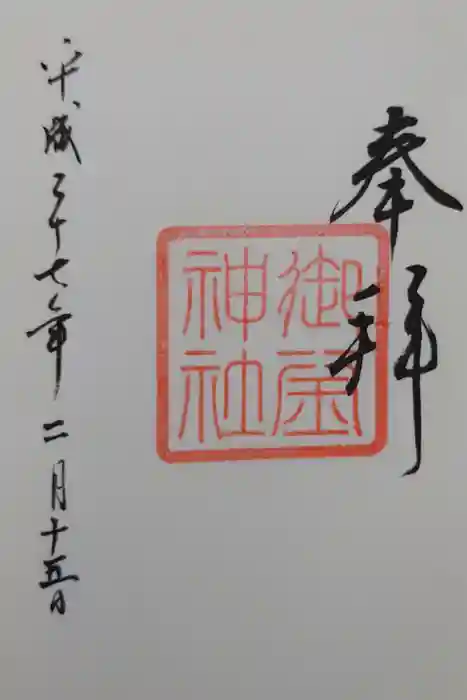 奉拝
御
神社
平成二十七年二月十五日